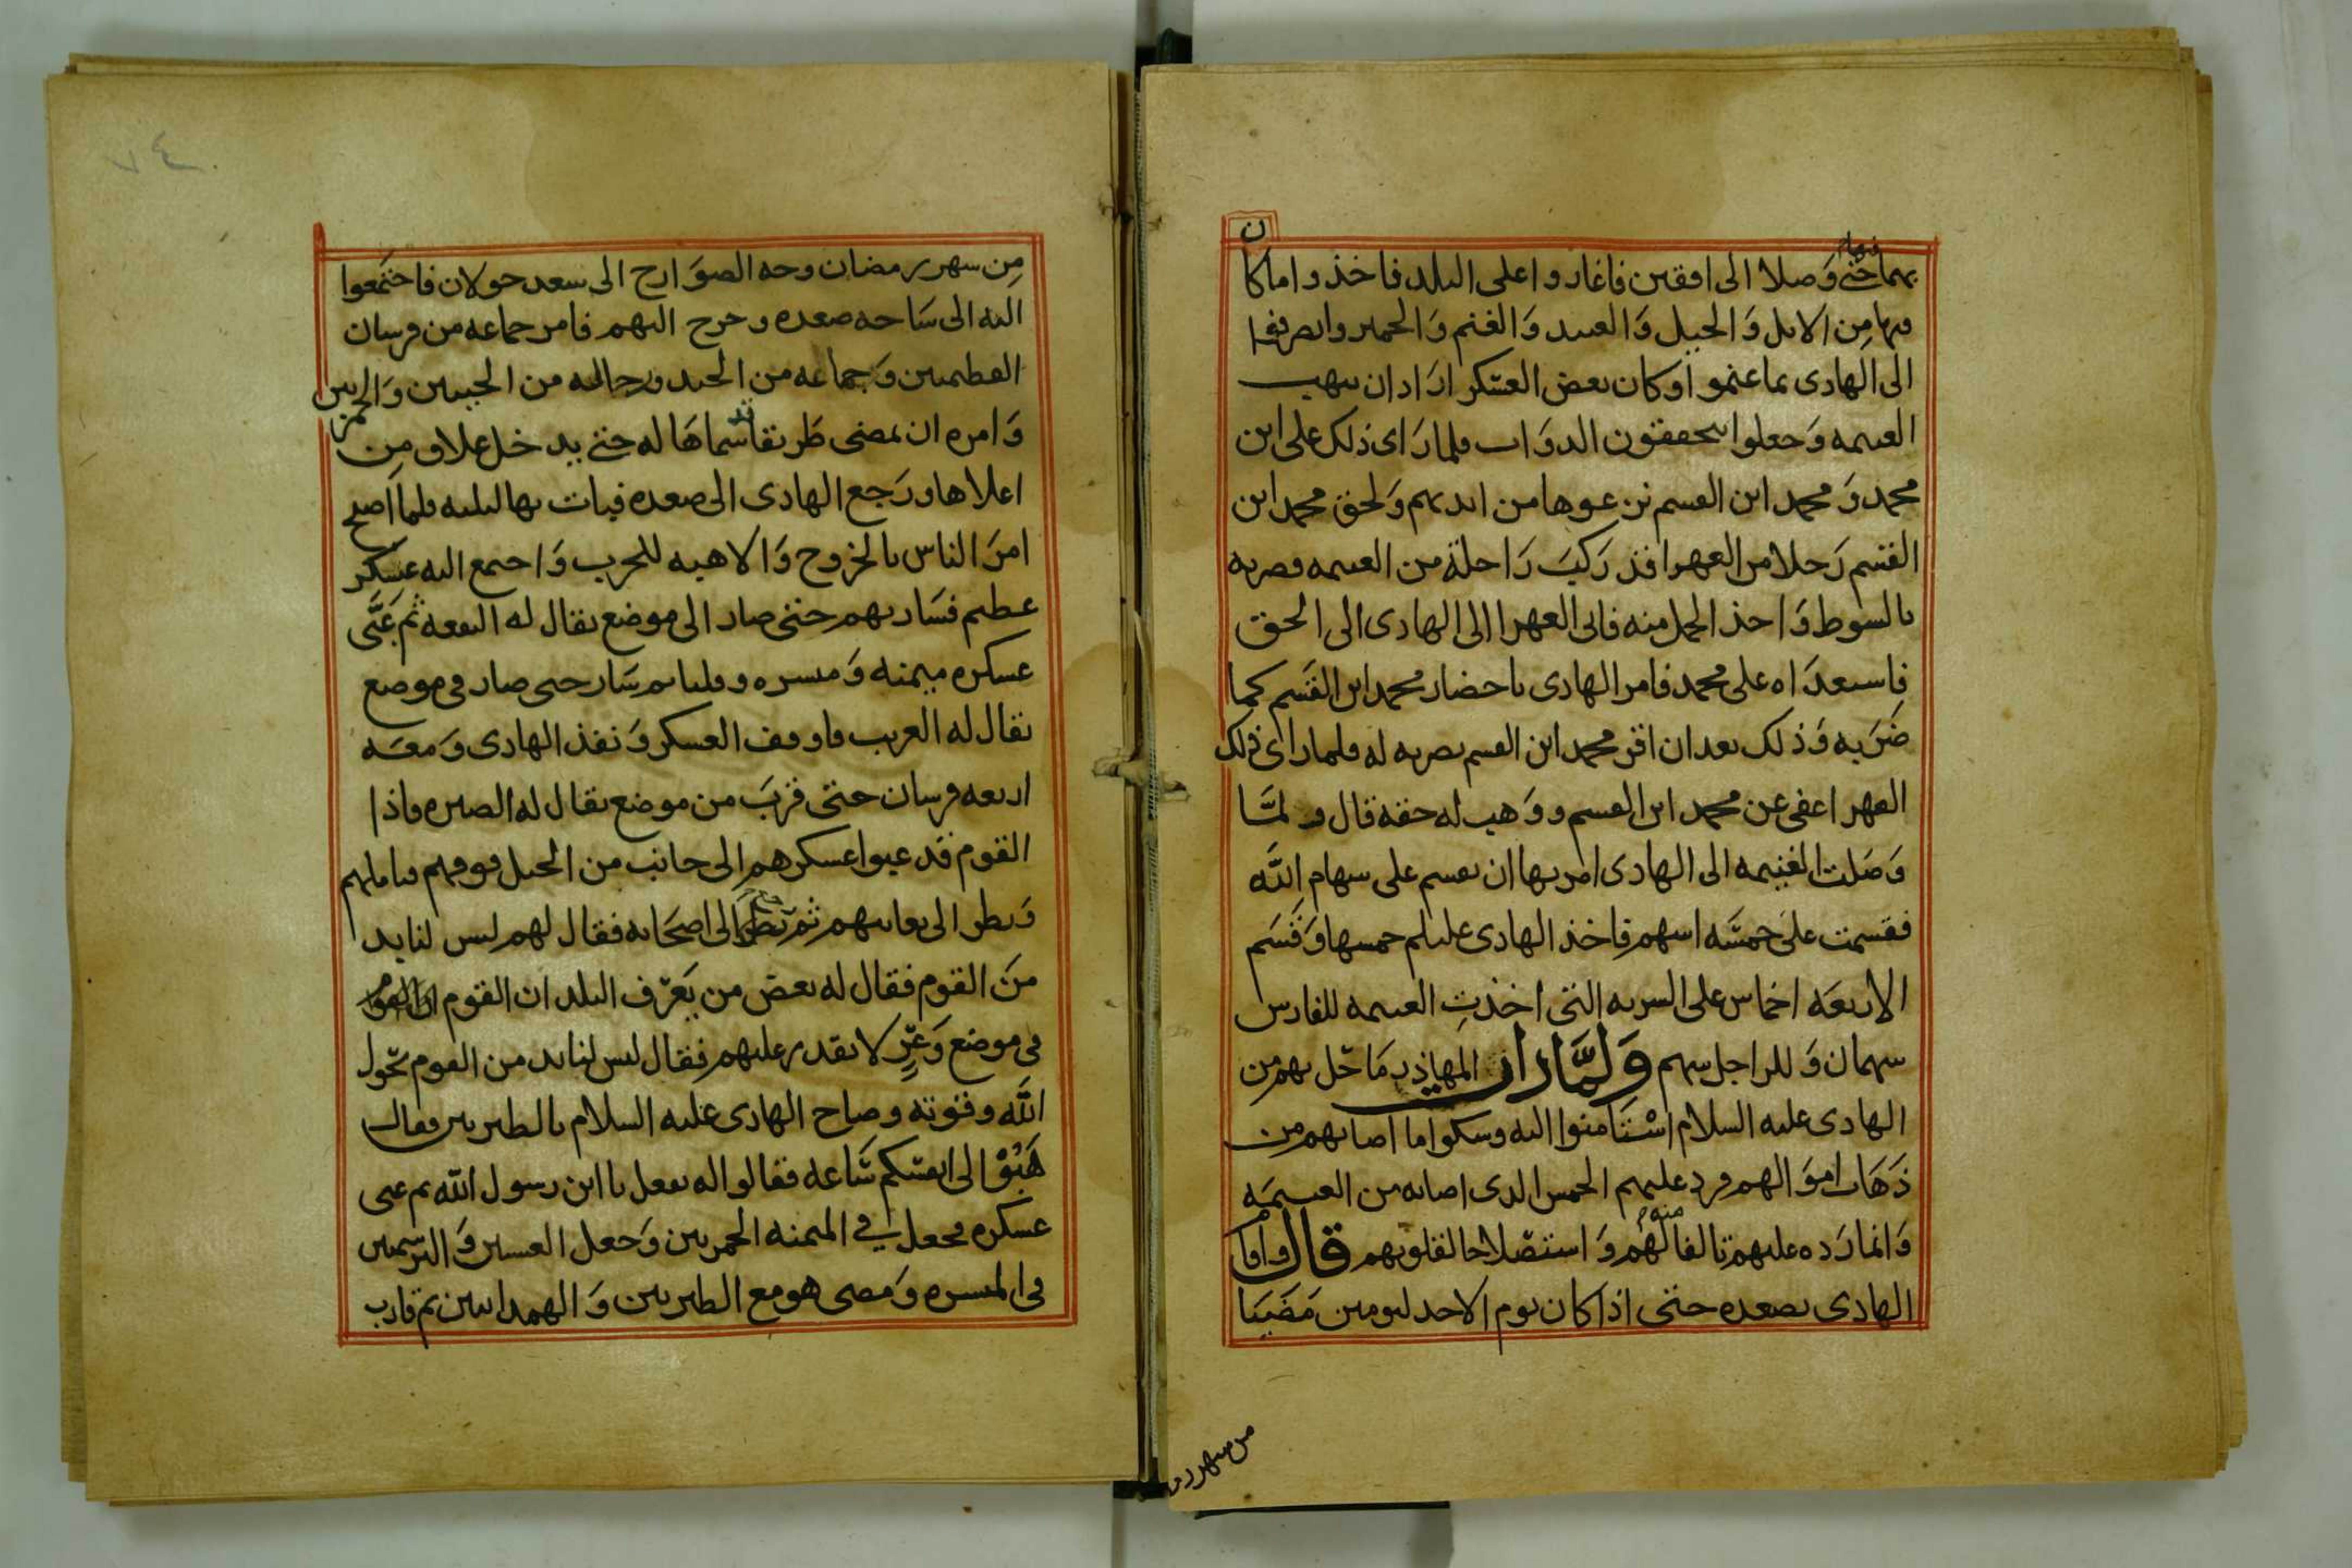 بهما حتى وصلا الى افقين فاغاروا على البلد فاخذوا ما كان
فيها من الابل والخيل والعبيد والغنم والحمير وانصرفوا
الى الهادى بما غنموا وكان بعض العسكر اراد ان ينهب
الغنيمه وجعلوا يخفقون الدواب فلما راى ذلك على ابن
محمد ومحمد ابن القسم نزعوها من ايديهم ولحق محمد ابن
القسم رجلا من العهرا قد ركب راحلة من الغنيمه فضربه
بالسوط واخذ الجمل منه فاتى العهرا الى الهادى الى الحق
فاستعداه على محمد فامر الهادى باحضار محمد ابن القسم كما
ضربه وذلك بعد ان اقر محمد ابن القسم بضربه له فلما راى ذلك
العهر اعفى عن محمد ابن القسم ووهب له حقه قال ولما
وصلت الغنيمه الى الهادى امر بها ان تقسم على سهام الله
فقسمت على خمسه اسهم فاخذ الهادى عليلم خمسها وقسم
الاربعه اخماس على السريه التى اخذت الغنيمه للفارس
سهمان وللراجل سهم ولما ران المهاذر ما حل بهم من
الهادى عليه السلام استامنوا اليه وسكوا ما اصابهم من
ذهاب اموالهم فرد عليهم الخمس الذى اصابه من الغنيمه
وانما رده عليهم تالفا منه لهم واستصلاحا لقلوبهم قال واقام
الهادى بصعده حتى اذا كان يوم الاحد ليومين مضيا
من شهر رم
٧٤
من شهر رمضان وجه الصوارخ الى سعد خولان فاجتمعوا
اليه الى ساحه صعده وخرج اليهم فامر جماعه من فرسان
الفطيميين وجماعه من الجند ورجاله من الحبيين والحمزيين
وامره ان يمضى طريقا قد سماها له حتى يدخل علاف من
اعلاها ورجع الهادى الى صعده فبات بها ليلته فلما اصبح
امر الناس بالخروج والاهبه للحرب واجتمع اليه عسكر
عظيم فسار بهم حتى صار الى موضع يقال له البقعه ثم عبى
عسكره ميمنه وميسره وقلبا ثم سار حتى صار فى موضع
يقال له الغريب فاوقف العسكر ونفذ الهادى ومعه
اربعه فرسان حتى قرب من موضع يقال له الصبره فاذا
القوم قد عبوا عسكرهم الى جانب من الجبل فوقهم فتاملهم
ونظر الى تعابيهم ثم نظر الى اصحابه فقال لهم ليس لنا بد
من القوم فقال له بعض من يعرف البلد ان القوم
فى موضع وعر لا يقدر عليهم فقال ليس لنا بد من القوم بحول
الله وقوته وصاح الهادى عليه السلام بالطبريين فقال
هبوا الى انفسكم ساعه فقالوا له نفعل يا ابن رسول الله ثم عبى
عسكره فجعل في الميمنه الحمزيين وجعل العسيين والبرسميين
فى الميسره ومضى هو مع الطبريين والهمدانيين ثم قارب